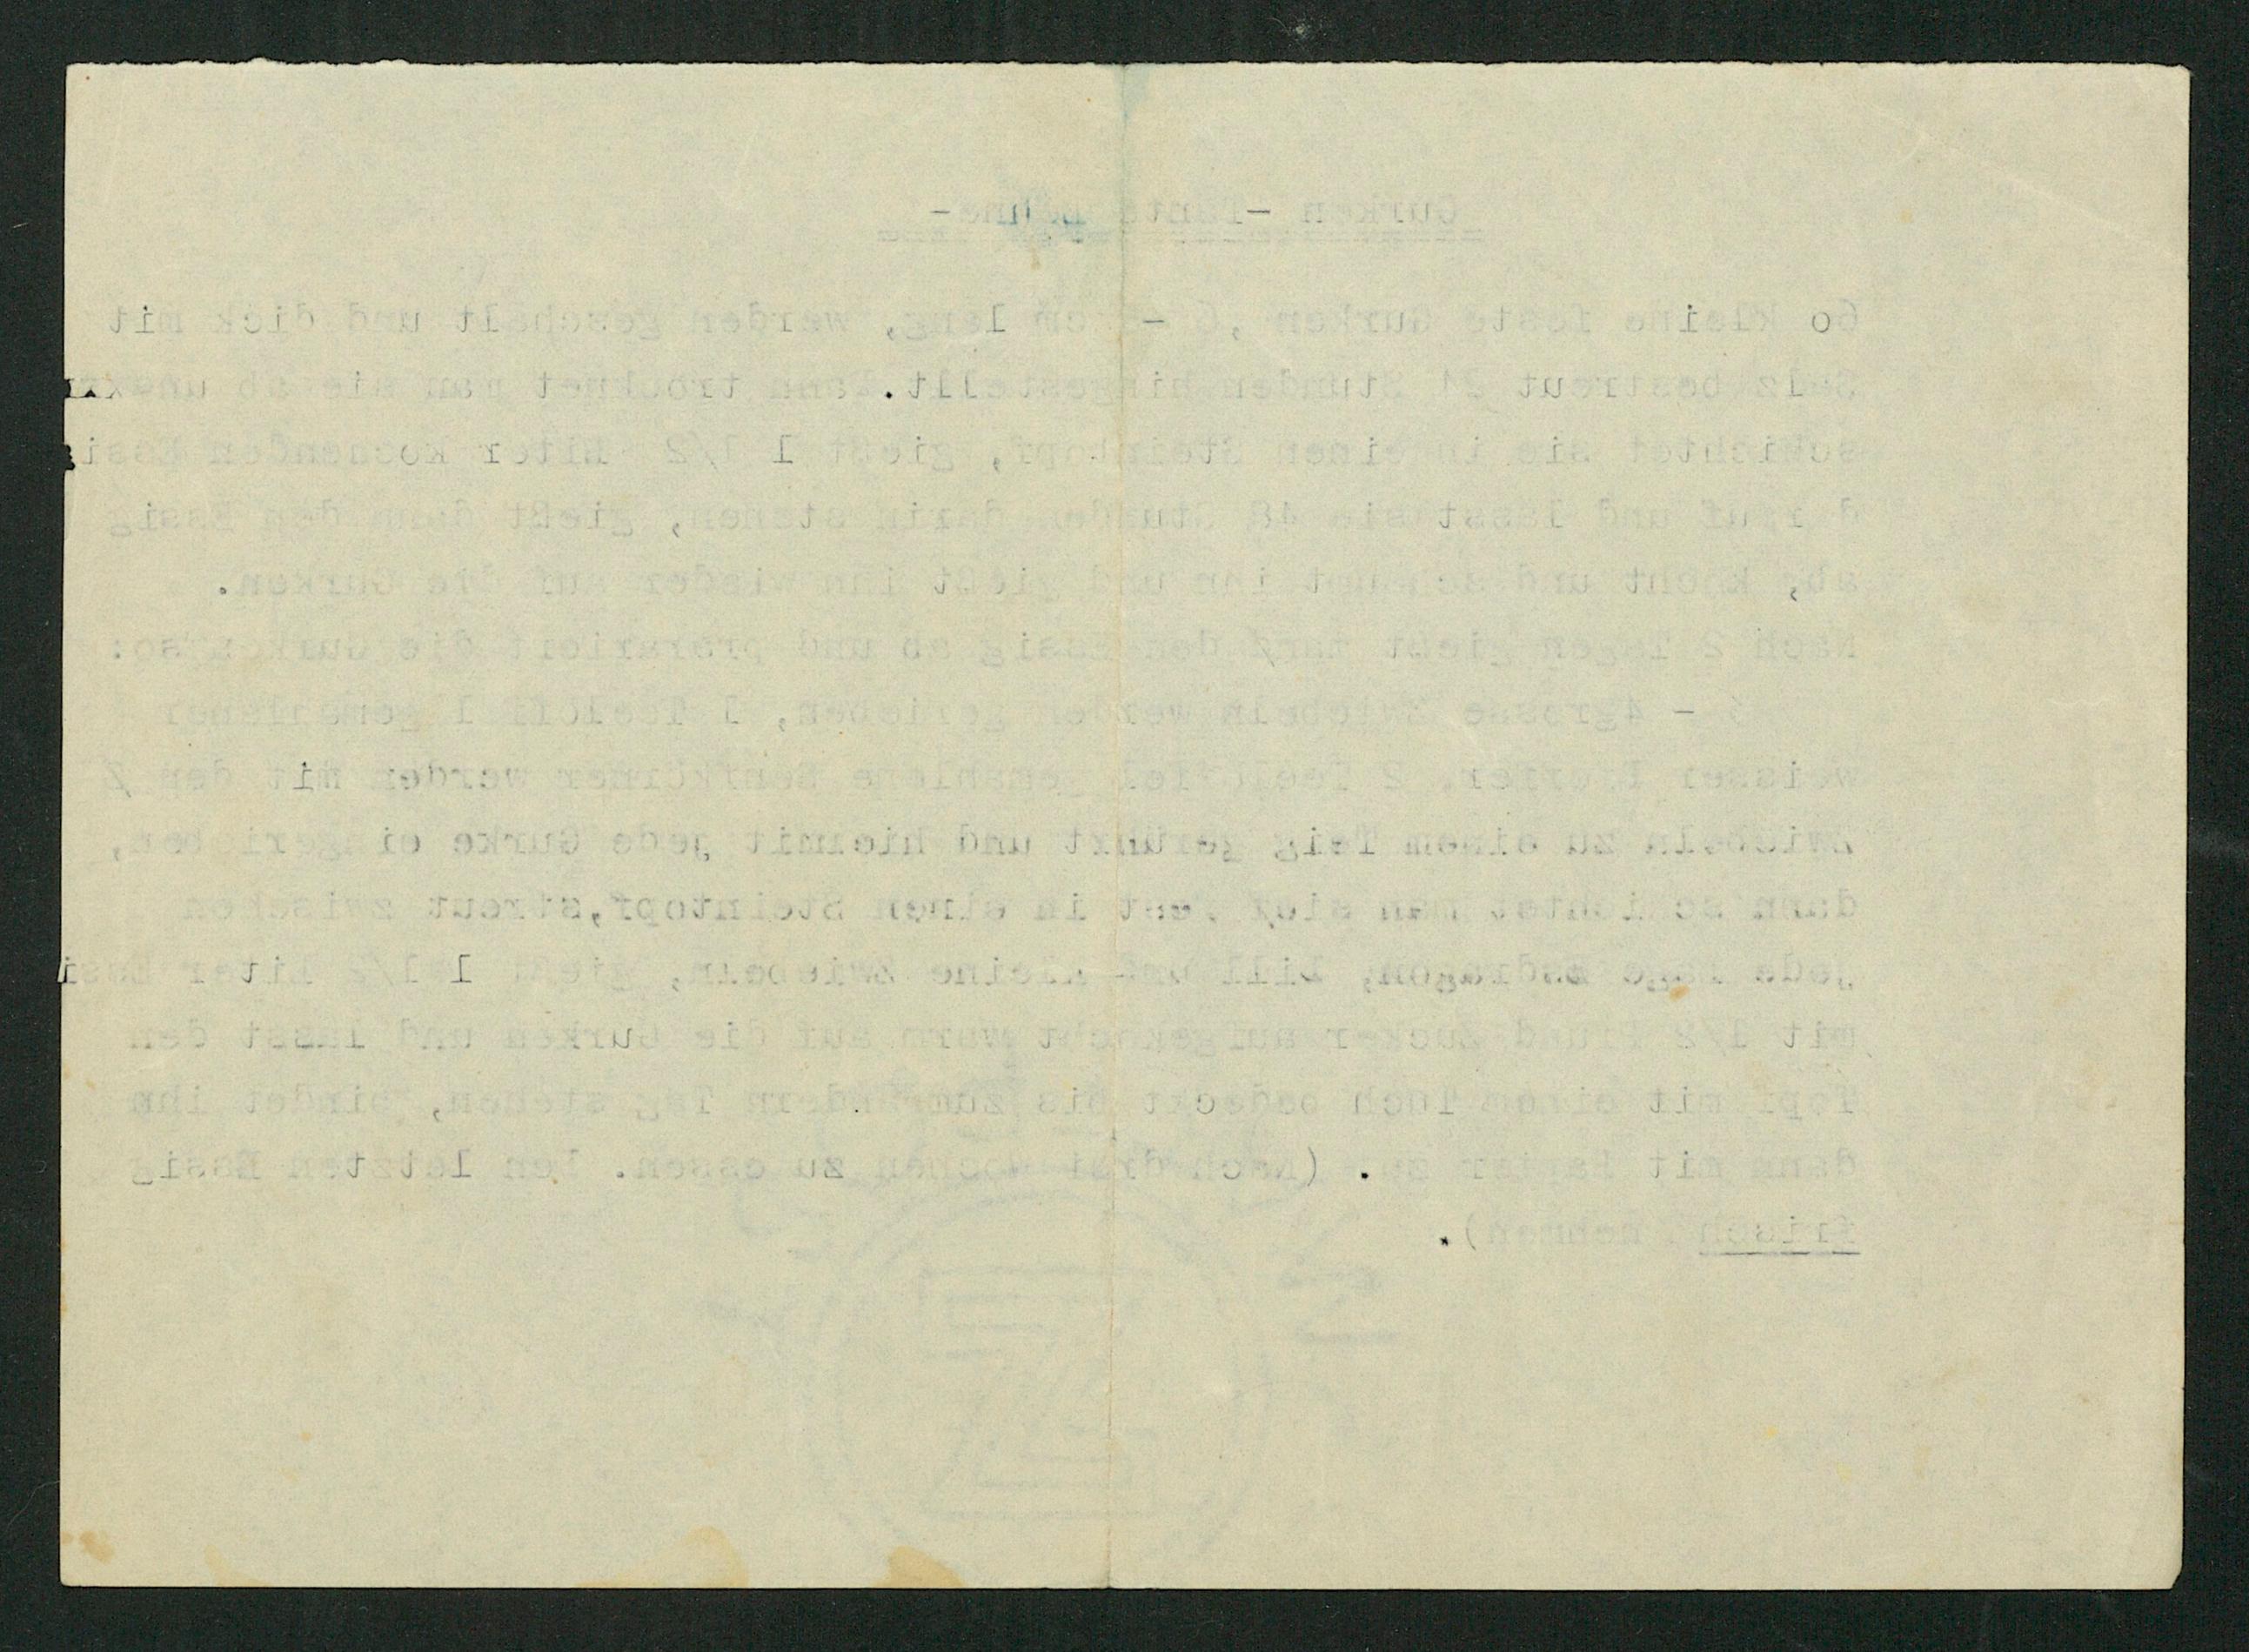 Gurken - Tante
60 kleine feste Gurken, 6 - cm lang, werden geschält und dick mit
Salz bestreut 24 Stunden hingestellt. Dann trocknet man sie ab und
schichtet sie in einen Steintopf, gießt 1 1/2 Liter kochenden Essig
darauf und lässt sie 48 Stunden darin stehen, gießt dann den Essig
ab, kocht und schäumt ihn und gießt ihn wieder auf die Gurken.
Nach 2 Tagen gießt man den Essig ab und präpariert die Gurken so:
3 - 4grosse Zwiebeln werden gerieben, 1 Teelöffel gemahlener
weisser Pfeffer, 2 Teelöffel gemahlene Senfkörner werden mit den
Zwiebeln zu einem Teig gerührt und hiermit jede Gurke eingerieben,
dann schichtet man sie fest in einen Steintopf,streut zwischen
jede Lage Dill und kleine Zwiebeln, gießt 1 1/2 Liter Essi
mit 1/2 Pfund Zucker aufgekocht warm auf die Gurken und lässt den
Topf mit einem Tuch bedeckt bis zum andern Tag stehen, bindet ihn
dann mit Papier zu. (Nach drei Wochen zu essen. Den letzten Essig
frisch nehmen).